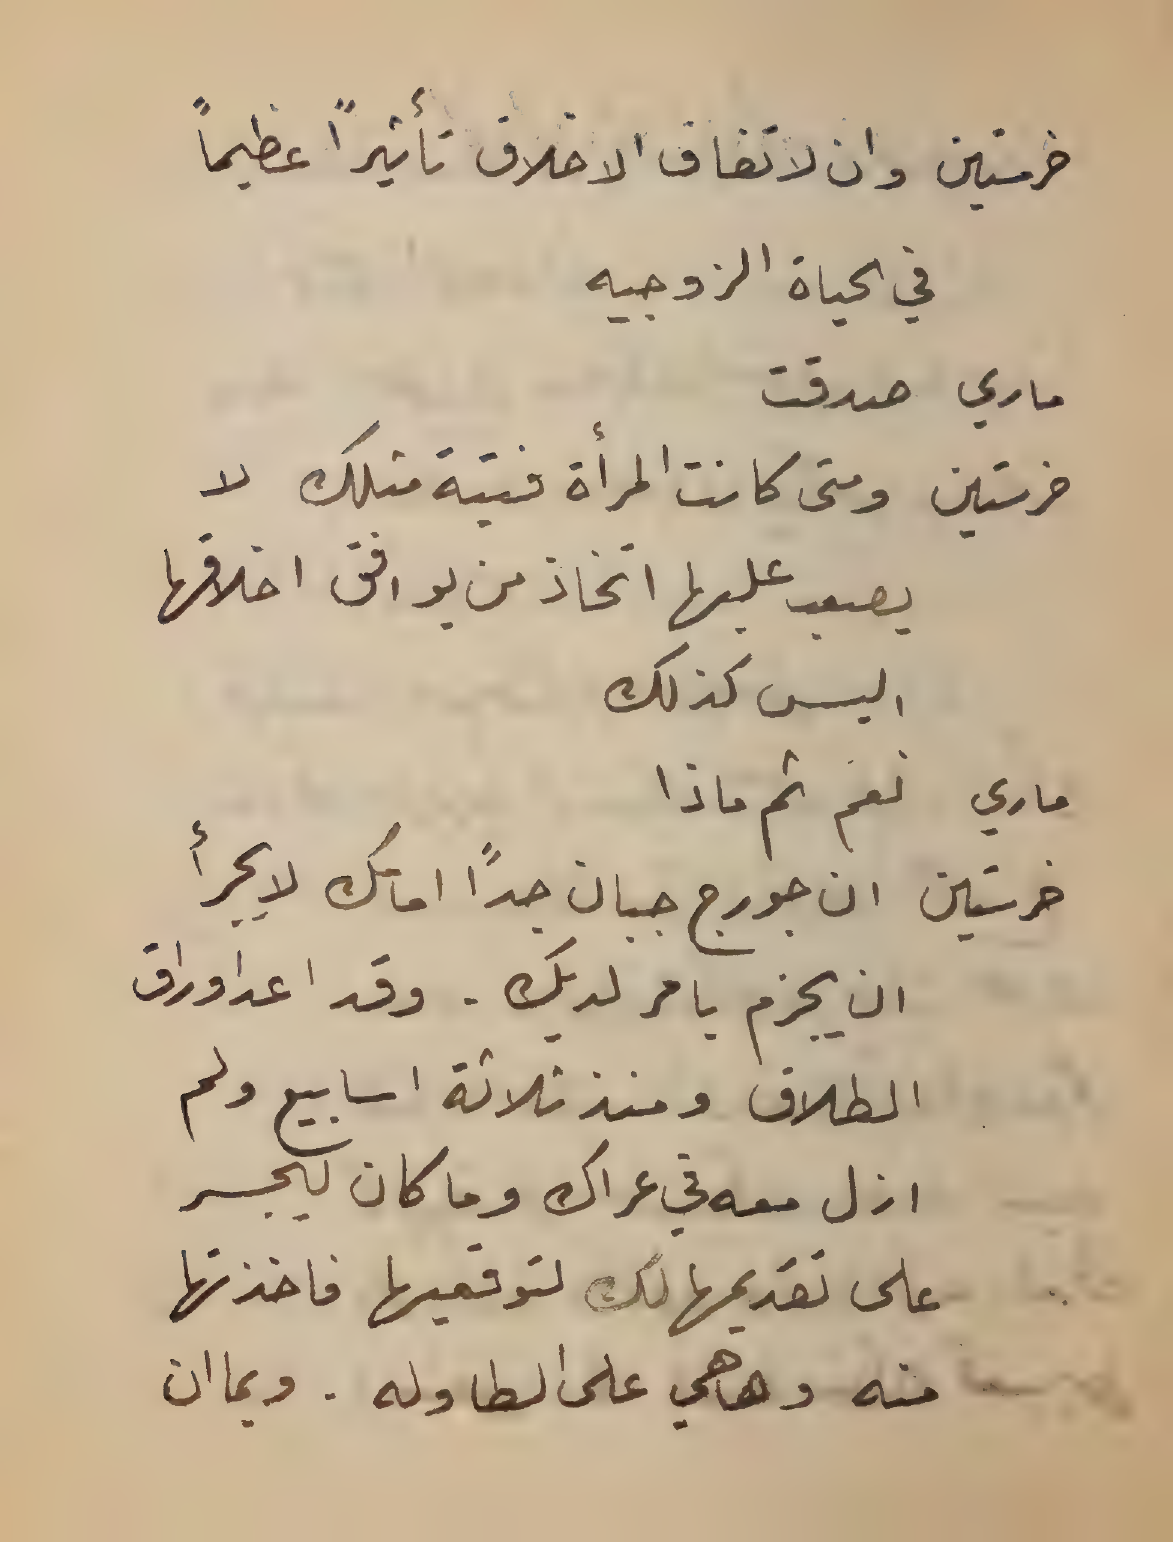 خرستين وان لاتفاق الاخلاق تأثيراً عظيماً
في الحياة الزوجيه
ماري صدقت
خرستين ومتى كانت المرأة فتية مثلك لا
يصعب عليها اتخاذ من يوافق اخلاقها
اليس كذلك
ماري نعم ثم ماذا
خرستين ان جورج جبان جداً امامك لا يجرأ
ان يجزم بامر لديك . وقد اعد اوراق
الطلاق ومنذ ثلاثة اسابيع ولم
ازل معه في عراك وما كان ليجسر
على تقديمها لك لتوقعيها فاخذتها
منه وهاهي على الطاوله . وبما ان